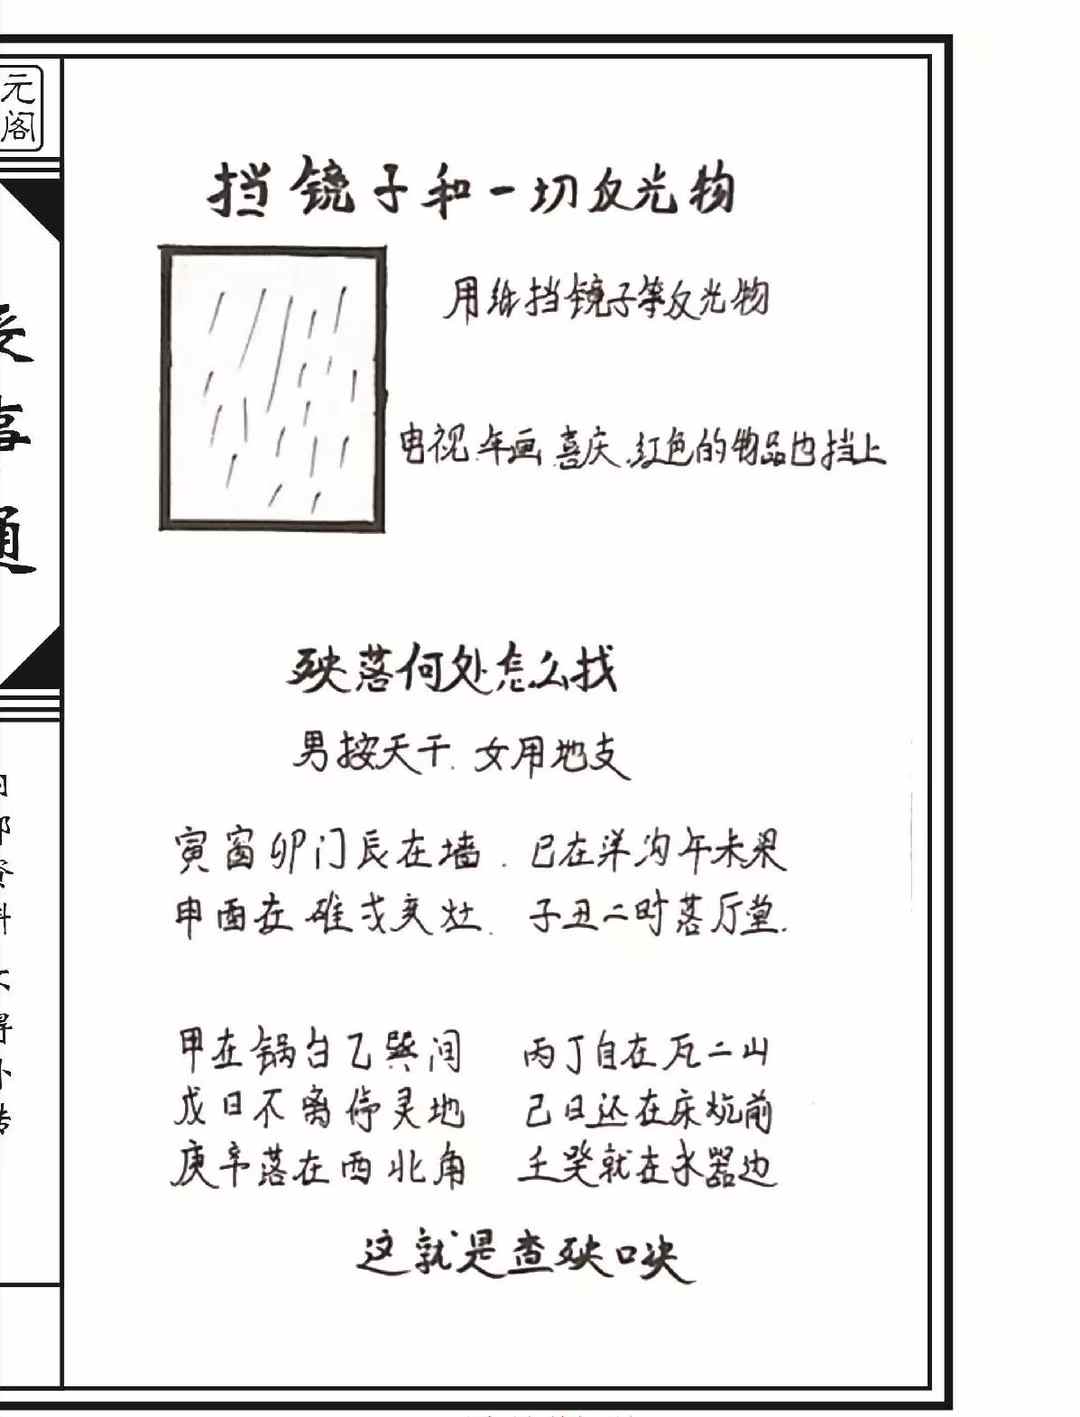 元
阁
丧
事
通
挡镜子和一切反光物
用纸挡镜子等反光物
电视.年画.喜庆.红色的物品也挡上
殃落何处怎么找
男按天干.女用地支
寅窗卯门辰在墙.巳在洋沟午未梁
申酉在碓戌亥灶.子丑二时落厅堂.
甲在锅台乙巽间 丙丁自在瓦二山
戊日不离停灵地 己日还在床炕前
庚辛落在西北角 壬癸就在水器边
这就是查殃口决